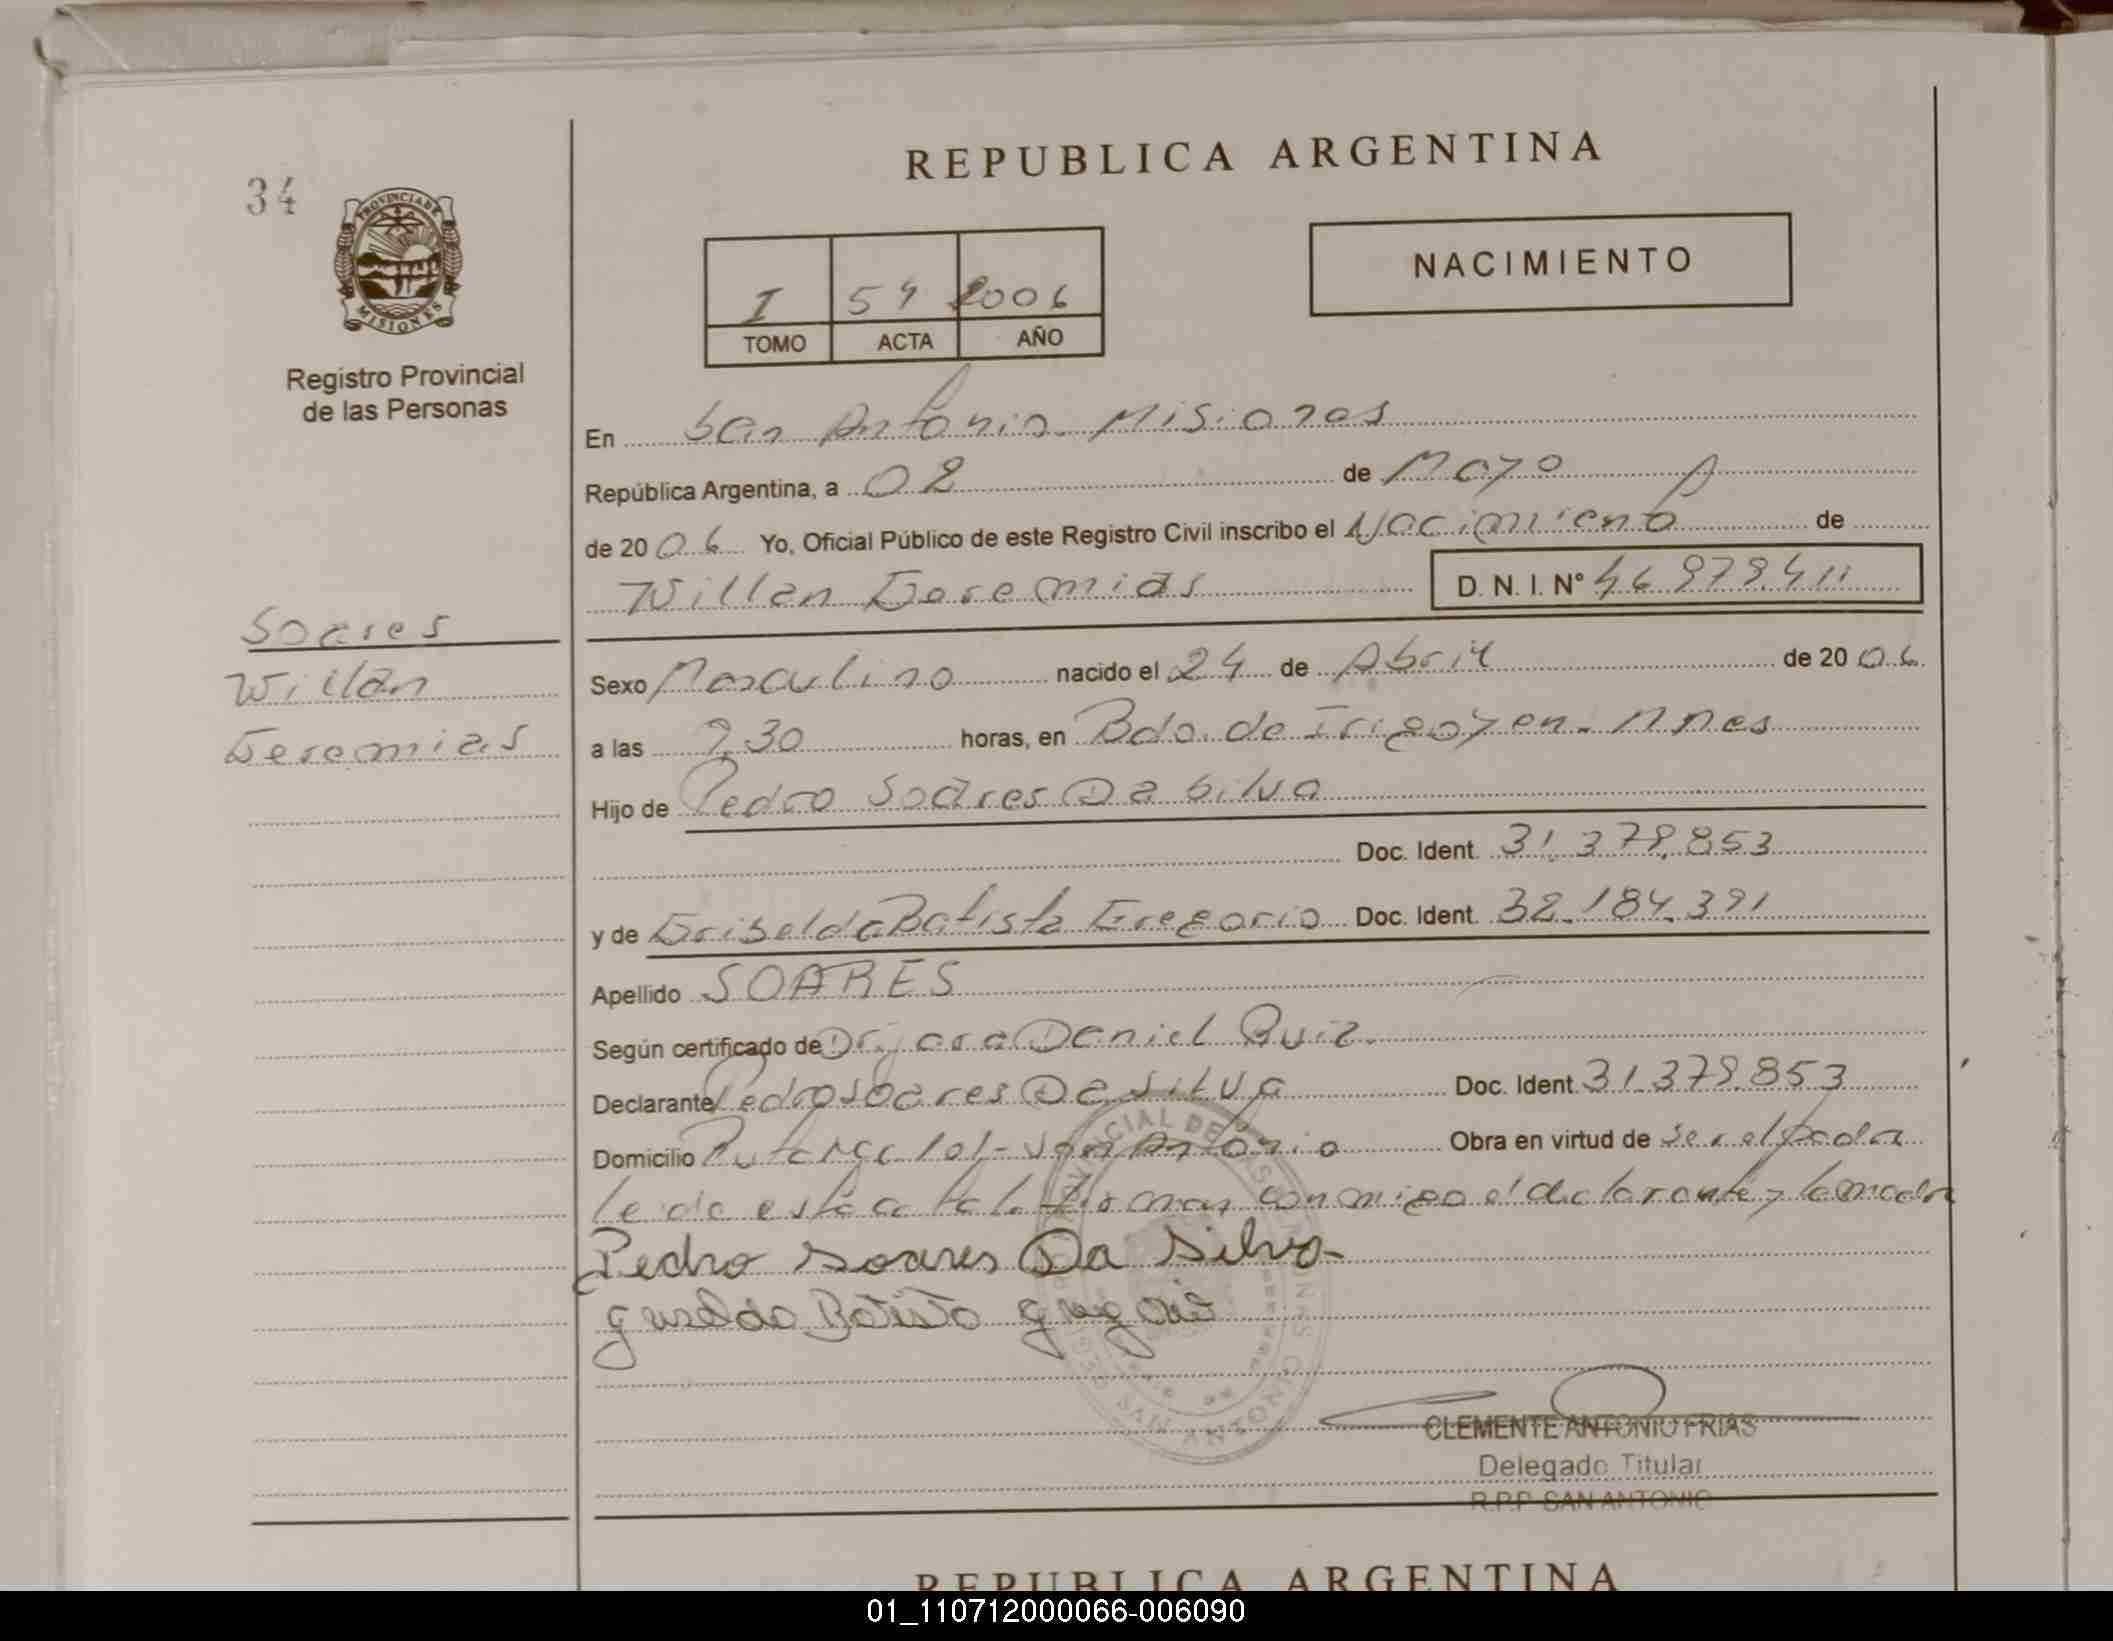 34
PROVINCIA DE
MISIONES
Registro Provincial
de las Personas
REPUBLICA ARGENTINA
I 54 2006
TOMO ACTA AÑO
NACIMIENTO
En San Antonio. Misiones
República Argentina, a 02 de Mayo
de 2006 Yo, Oficial Público de este Registro Civil inscribo el Nacimiento de
Willan Geremias D. N. I. Nº
Soares
Willan
Geremias
Sexo Masculino nacido el 24 de Abril de 2006
a las 9,30 horas, en Bdo. de Irigoyen. Mnes
Hijo de Pedro Soares Da Silva
Doc. Ident. 31.379.853
y de Griselda Batista Gregorio Doc. Ident. 32.184.391
Apellido SOARES
Según certificado de Daniel Ruiz.
Declarante Pedro Soares Da Silva Doc. Ident. 31.379.853
Domicilio 101 - San Antonio Obra en virtud de ser el padre
leida esta acta. Firman con migo el declarante y la madre
Pedro Soares Da Silva
Griselda Batista Gregorio
CLEMENTE ANTONIO FRIAS
Delegado Titular
R.P.P. SAN ANTONIO
REPUBLICA ARGENTINA
01_110712000066-006090